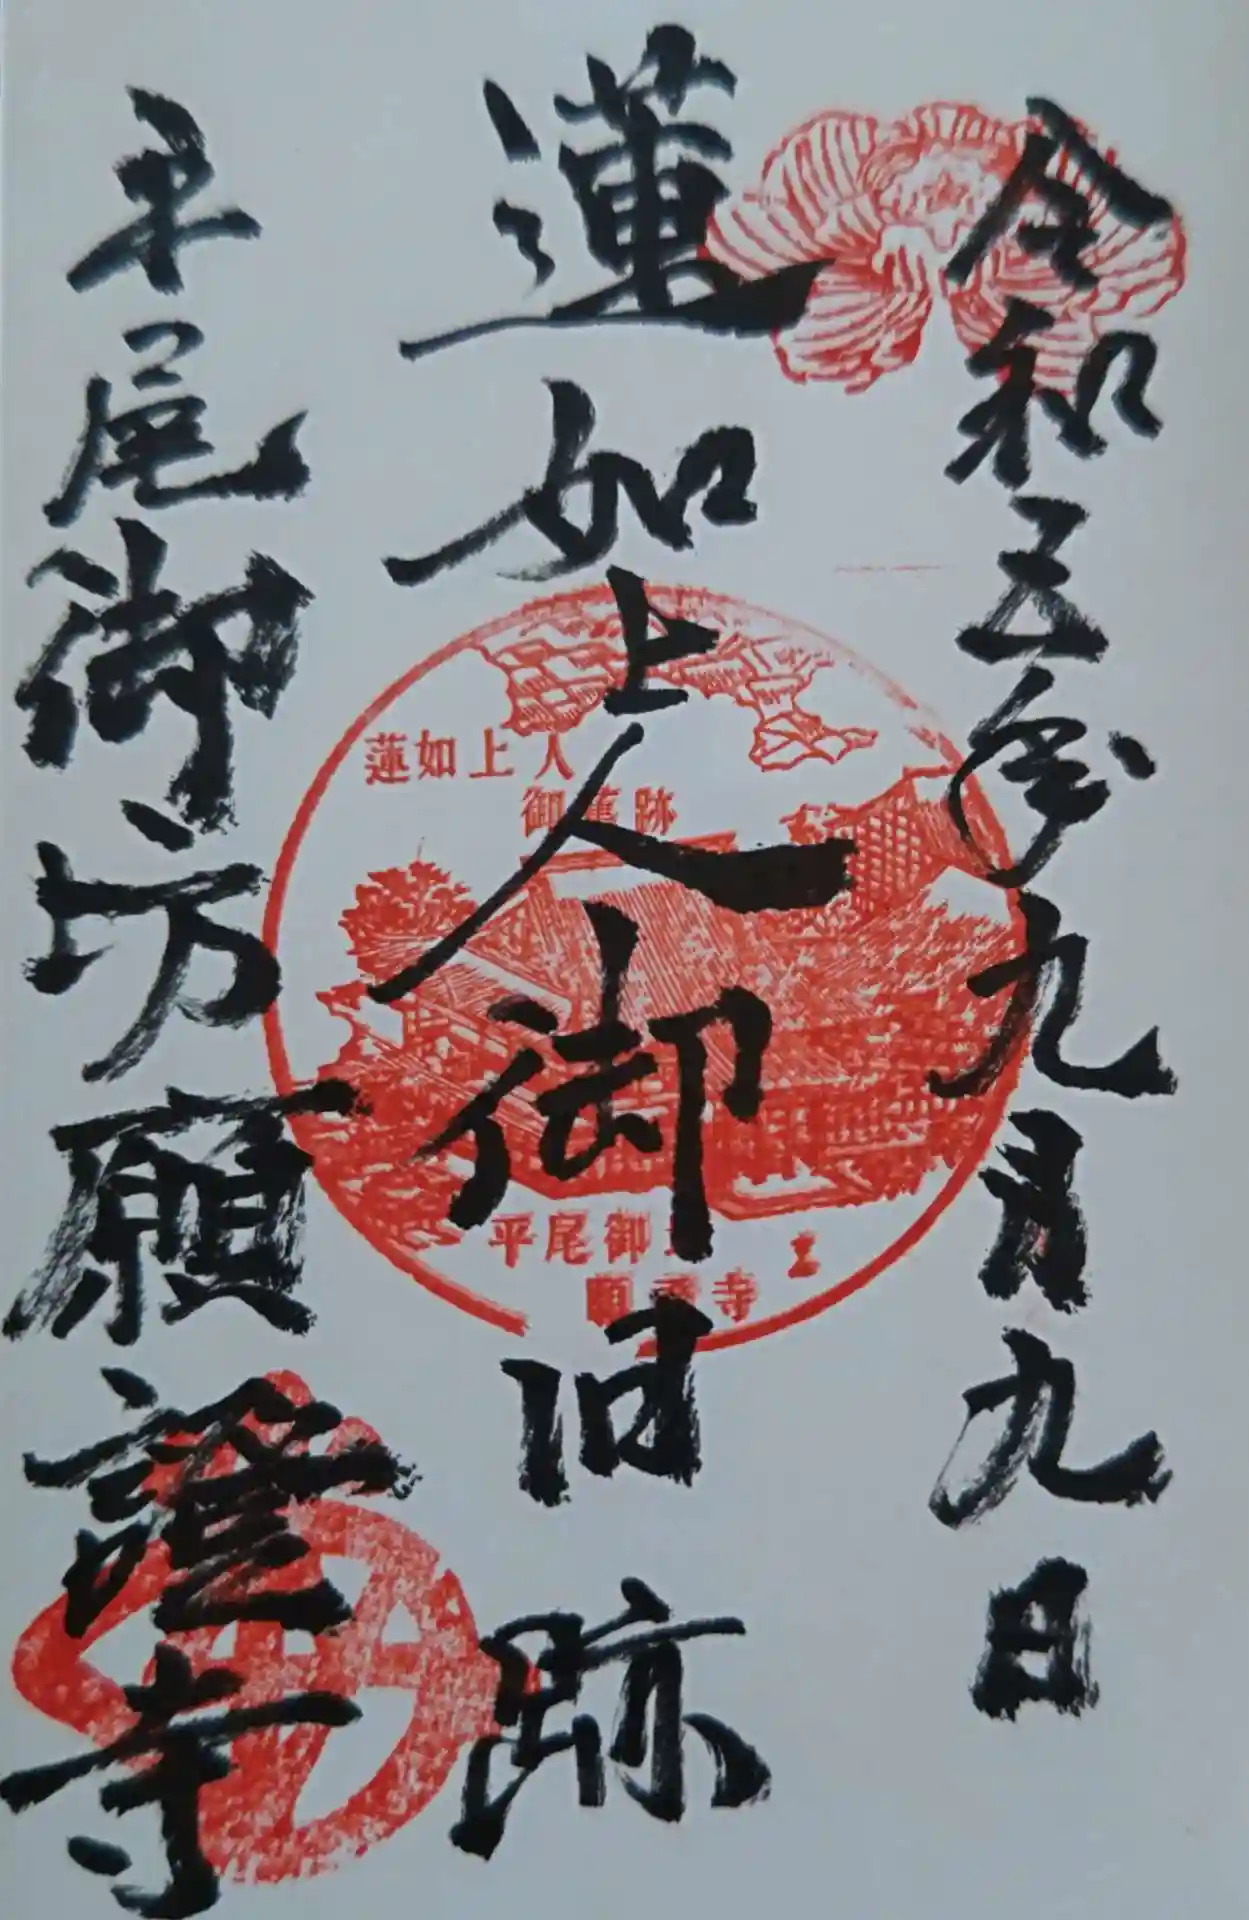 令和五年九月九日
蓮如上人御旧跡
平尾御坊願證寺
蓮如上人
御舊跡
平尾御
願證寺